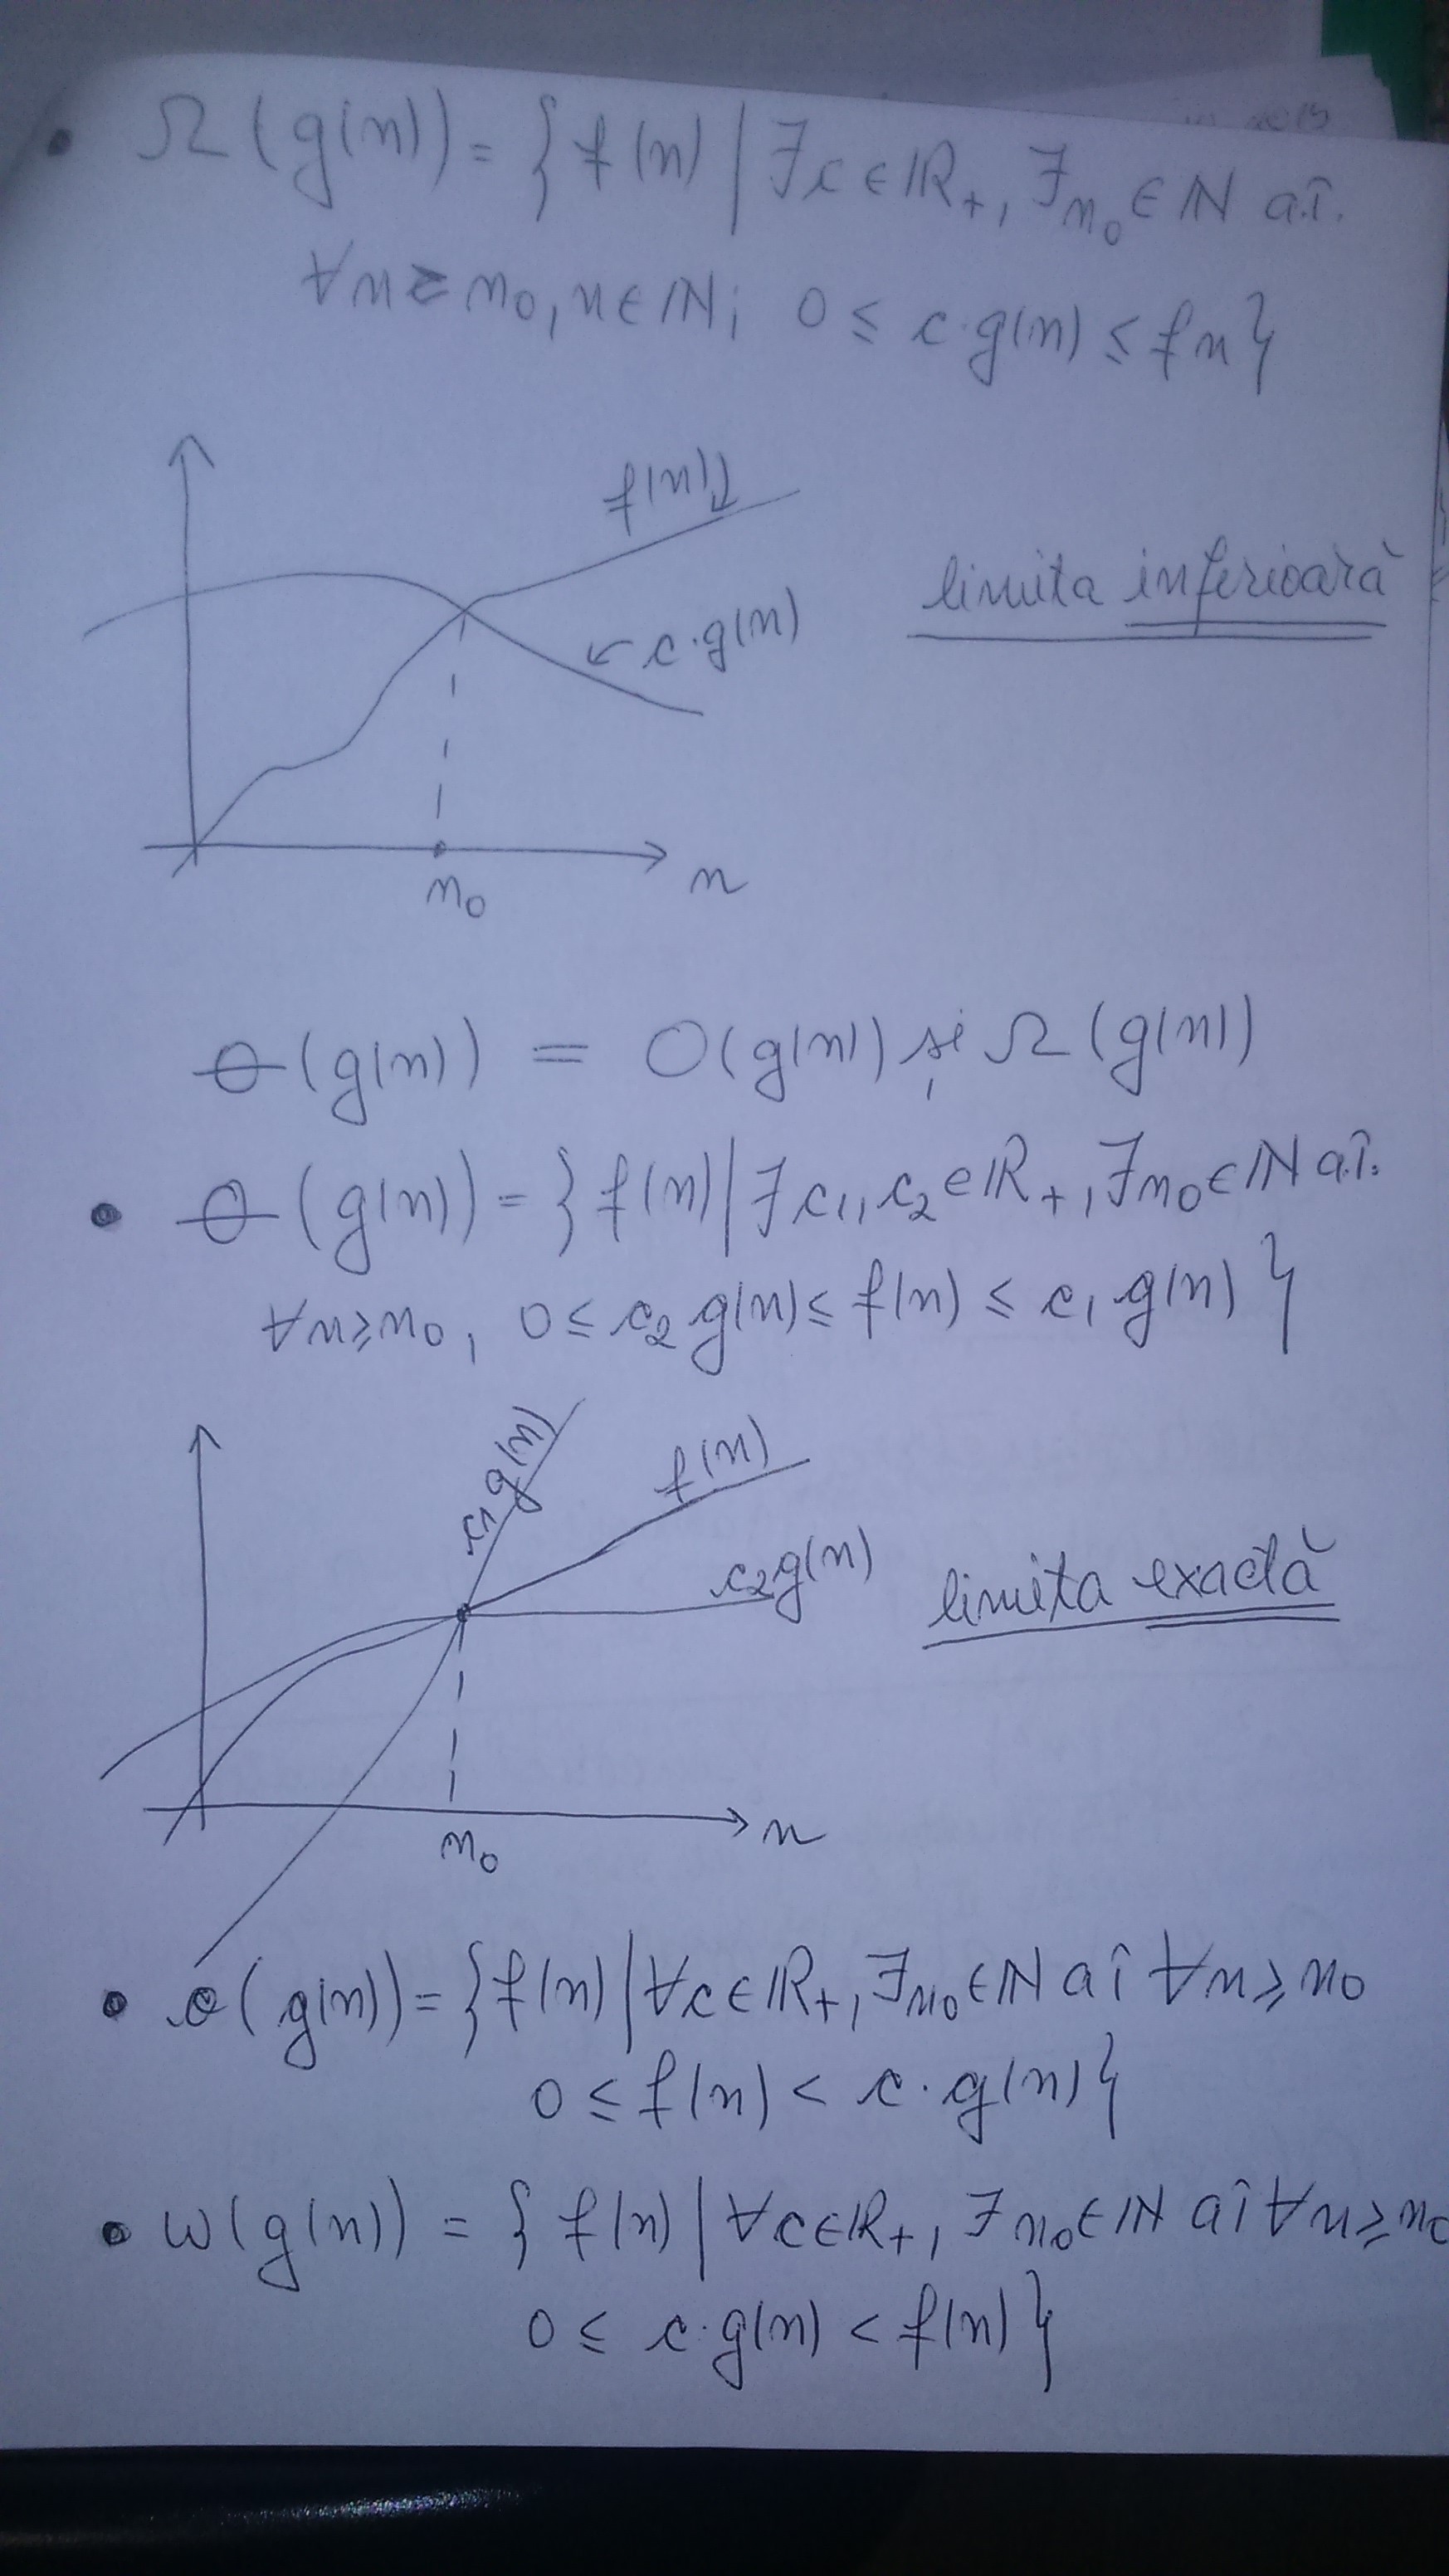 • Ω(g(n)) = {f(n) | ∃c∈ℝ₊, ∃n₀∈ℕ a.î.
∀n≥n₀, n∈ℕ; 0 ≤ c·g(n) ≤ fn}
f(n)
c·g(n)
limita inferioară
n₀
n
Θ(g(n)) = O(g(n)) și Ω(g(n))
• Θ(g(n)) = {f(n) | ∃c₁, c₂∈ℝ₊, ∃n₀∈ℕ a.î.
∀n≥n₀, 0 ≤ c₂g(n) ≤ f(n) ≤ c₁g(n)}
c₁g(n)
f(n)
c₂g(n)
limita exactă
n₀
n
• o(g(n)) = {f(n) | ∀c∈ℝ₊, ∃n₀∈ℕ aî ∀n≥n₀
0 ≤ f(n) < c·g(n)}
• ω(g(n)) = {f(n) | ∀c∈ℝ₊, ∃n₀∈ℕ aî ∀n≥n₀
0 ≤ c·g(n) < f(n)}